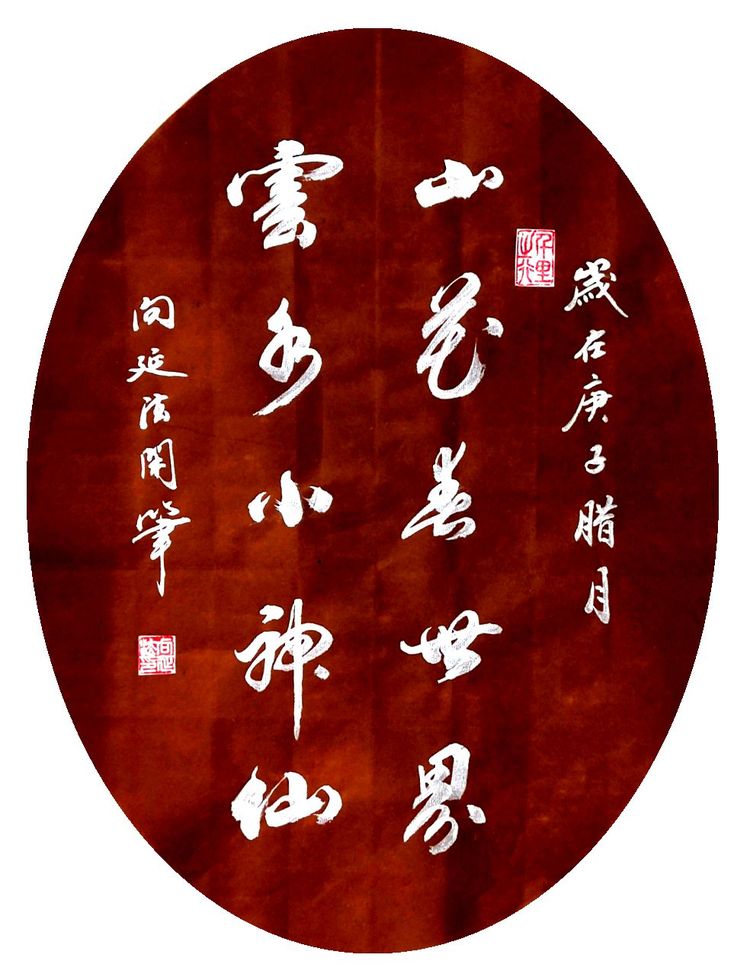 歲在庚子腊月
山花春世界
雲水小神仙
向延法開筆